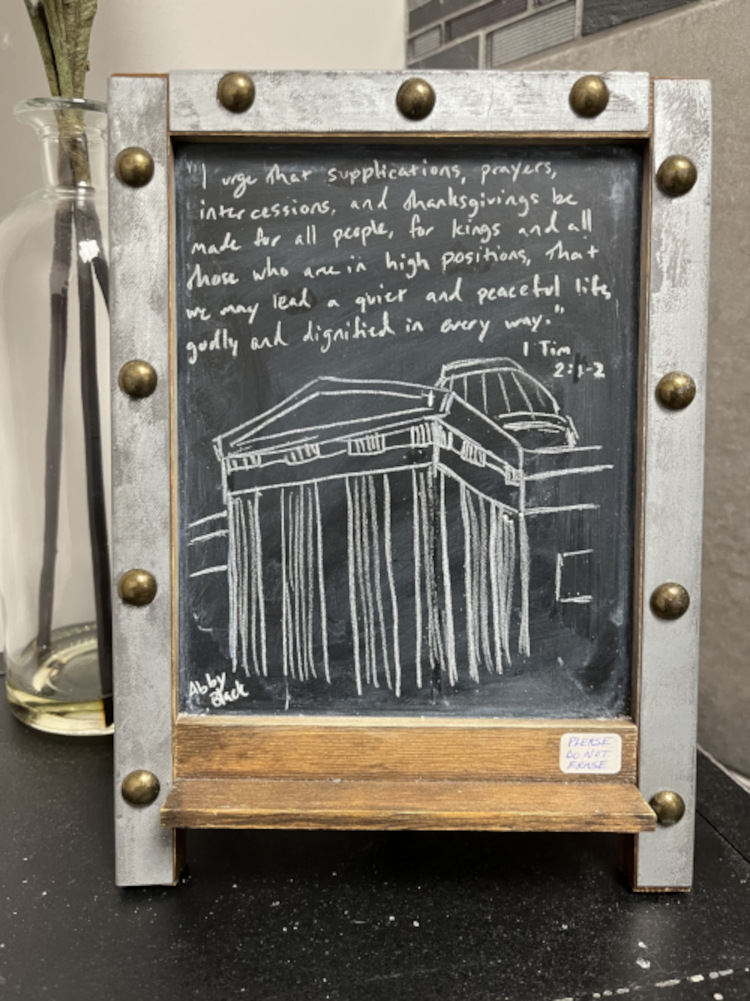 "I urge that supplications, prayers,
intercessions, and thanksgivings be
made for all people, for kings and all
those who are in high positions, that
we may lead a quiet and peaceful life,
godly and dignified in every way."
1 Tim
2:1-2
Abby
Black
PLEASE
DO NOT
ERASE